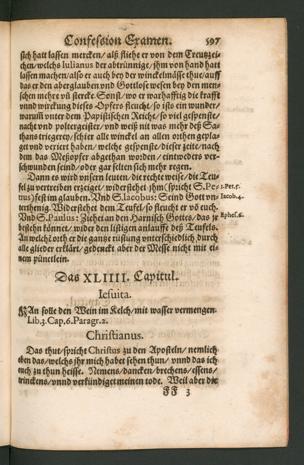 Confession Examen. 597
sich hatt lassen mercken/ alß fliehe er von dem Creutzzei-
chen/ welchs Iulianus der abtrünnige/ ihm von hand hatt
lassen machen/ also er auch bey der winckelmäsß thue/ auff
das er den aberglauben vnd Gottloß wesen bey den men-
schen mehre vñ stercke. Sonst/ wo er warhafftig die krafft
vnnd würckung dieses Opfers fleucht/ so ists ein wunder/
warumb vnter dem Papistischen Reich/ so viel gespenste/
nacht vnd poltergeister/ vnd weiß nit was mehr deß Sa-
thans triegerey/ schier alle winckel an allen orthen gepla-
get vnd veriert haben/ welche gespenste/ dieser zeite/ nach-
dem das Meßopfer abgethan worden/ eintweders ver-
schwunden sind/ oder gar selten sich mehr regen.
Damit wir vnsern leuten/ die recht weise/ die Teu-
fel zu vertreiben erzeigt/ widerstehet jhm (spricht S. Pe- 1. Pet. 5.
trus) fest im glauben. Vnd S. Iacobus: Seind Gott vn- Iacob. 4.
terthenig. Widerstehet dem Teufel/ so fleucht er vō euch.
Vnd S. Paulus: Ziehet an den Harnisch Gottes/ das jr Ephes. 6.
bestehn könnet/ wider den listigen anlauffe deß Teufels.
An welchē orth er die gantze rüstung vnterschidlich durch
alle glieder erklärt/ gedenckt aber der Messe nicht mit ei-
nem pünctlein.
Das XLIIII. Capitul.
Iesuita.
An solle den Wein im Kelch/ mit wasser vermengen.
Lib. 3. Cap. 6. Paragr. 2.
Christianus.
Das thut/ spricht Christus zu den Aposteln/ nemlich
eben das/ welchs jhr mich habet sehen thun/ vnnd das ich
euch zu thun heisse. Nemens/ dancken/ brechens/ essens/
trinckens/ vnnd verkündiget meinen tode. Weil aber die
FF 3